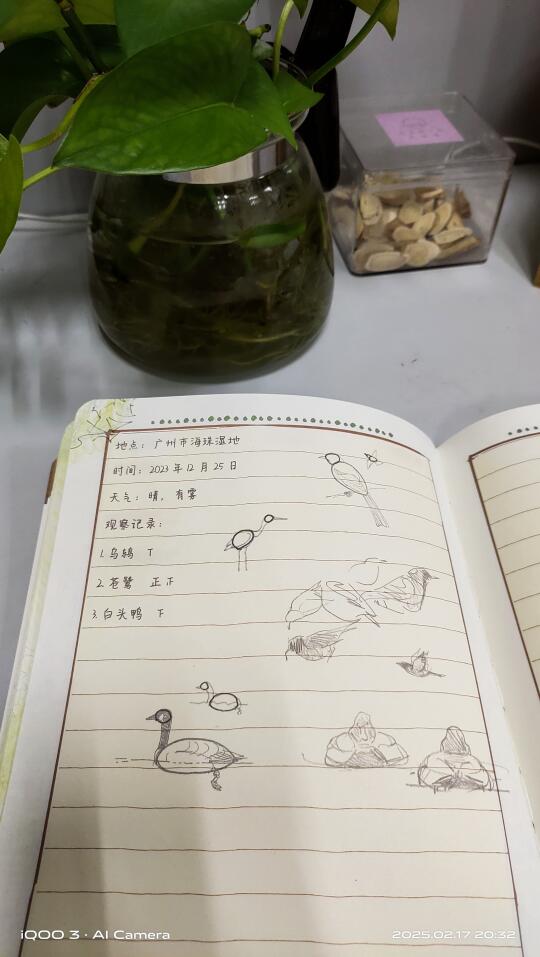 地点：广州市海珠湿地
时间：2023年12月25日
天气：晴，有雾
观察记录：
1.乌鸫 T
2.苍鹭 正下
3.白头鸭 下
iQOO 3 · AI Camera
2025.02.17 20:32